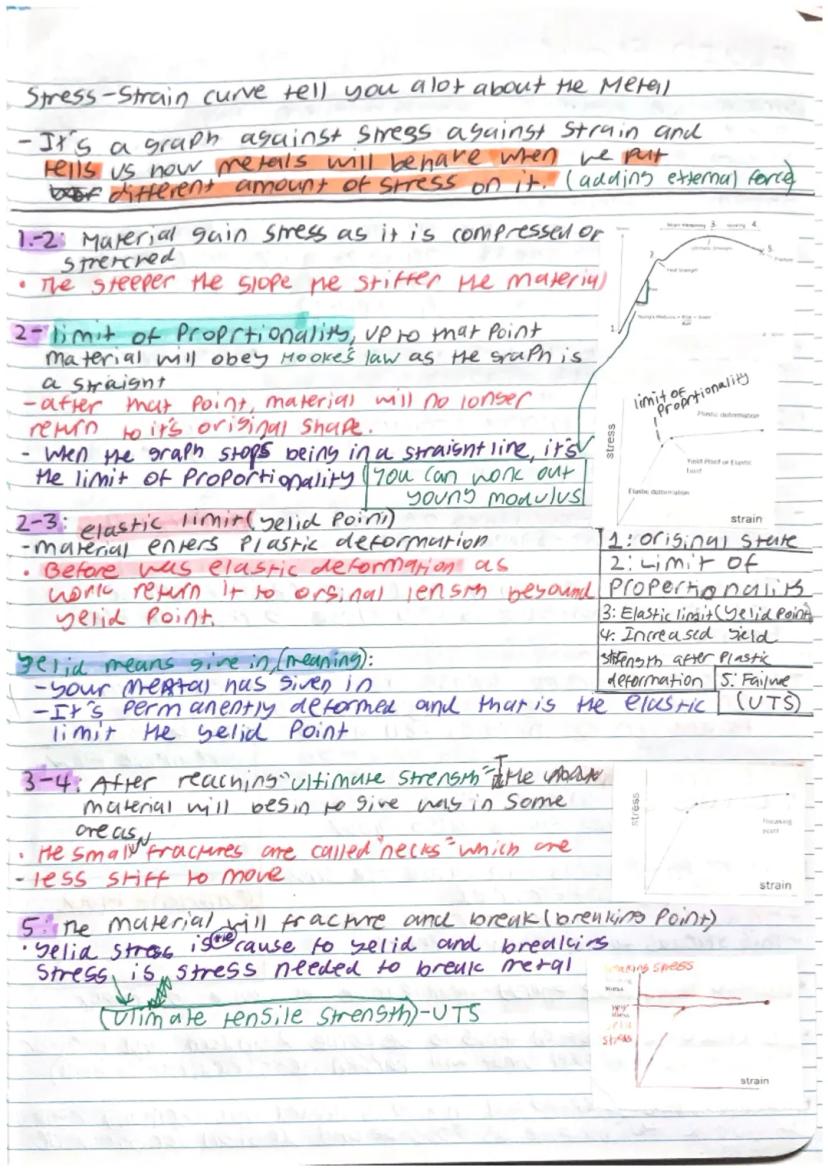 Stress-Strain curve tell you alot about the Metal
- It's a graph against stress against strain and
tells us how metals will behave when we put
different amount of stress on it. (adding external force)
1-2: Material gain stress as it is compressed or
stretched
• The steeper the slope the stiffer the material
2- limit of Proprtionality, up to that point
material will obey Hooke's law as the graph is
a straight
- after that point, material will no longer
return to it's original shape.
- When the graph stops being in a straight line, it's
the limit of Proportionality
You can work out
young modulus
2-3: elastic limit (yelid Point)
- material enters Plastic deformation
• Before was elastic deformation as
work return it to orginal length beyound
yelid Point.
yelid means give in, (meaning):
- your mertal has given in
- It's permanently deformed and that is the elastic
limit the yelid Point
3-4: After reaching "ultimate strength" the
material will begin to give way in some
areas
• The small fractures are called "necks" which are
- less stiff to move
5: The material will fracture and break (breaking Point)
• yelid stress is the cause to yelid and breaking
stress is stress needed to break metal
(Ulimate tensile strength)-UTS
1
2
3
4
5
Yield Strength
Ultimate Strength
Fracture
limit of
Proprtionality
Plastic deformation
Yield Point or Elastic
Limit
Elastic deformation
stress
strain
1: original state
2: Limit of
Propertionality
3: Elastic limit (yelid Point)
4: Increased yield
strength after Plastic
deformation
5: Failure
(UTS)
stress
Breaking
point
strain
breaking stress
stress
yelid
stress
strain